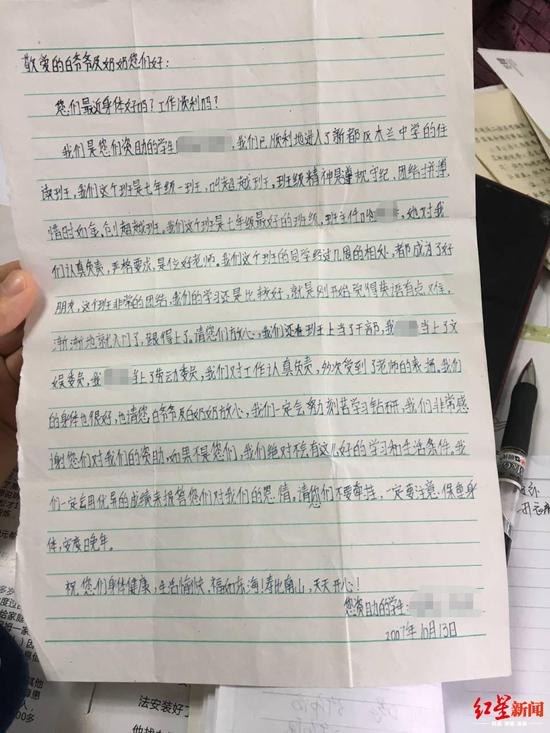 敬爱的白爷爷及奶奶您们好：
您们最近身体好吗？工作顺利吗？
我们是您们资助的学生 我们已顺利地进入了新都区木兰中学的住
读班，我们这个班是七年级一班，叫超越班，班级精神是遵规守纪、团结拼搏、
惜时如金、创超越班。我们这个班是七年级最好的班级，班主任叫 她对我
们认真负责，严格要求，是位好老师。我们这个班的同学经过几周的相处，都成为了好
朋友，这个班非常的团结，我们的学习还是比较好，就是刚开始觉得英语有点难，
渐渐地就入门了，跟得上了。请您们放心，我们还在班上当了干部，我 当上了文
娱委员，我 上了劳动委员，我们对工作认真负责，多次受到了老师的表扬。我们
的身体也很好，也请您白爷爷及白奶奶放心，我们一定会努力刻苦学习钻研，我们非常感
谢您们对我们的资助，如果不是您们，我们绝对不会有这么好的学习和生活条件。我
们一定会用优异的成绩来报答您们对我们的恩情。请您们不要牵挂，一定要注意保重身
体，安度晚年。
祝您们身体健康，生活愉快，福如东海！寿比南山，天天开心！
您资助的学生：
2007年10月13日
法安装好了
红星新闻